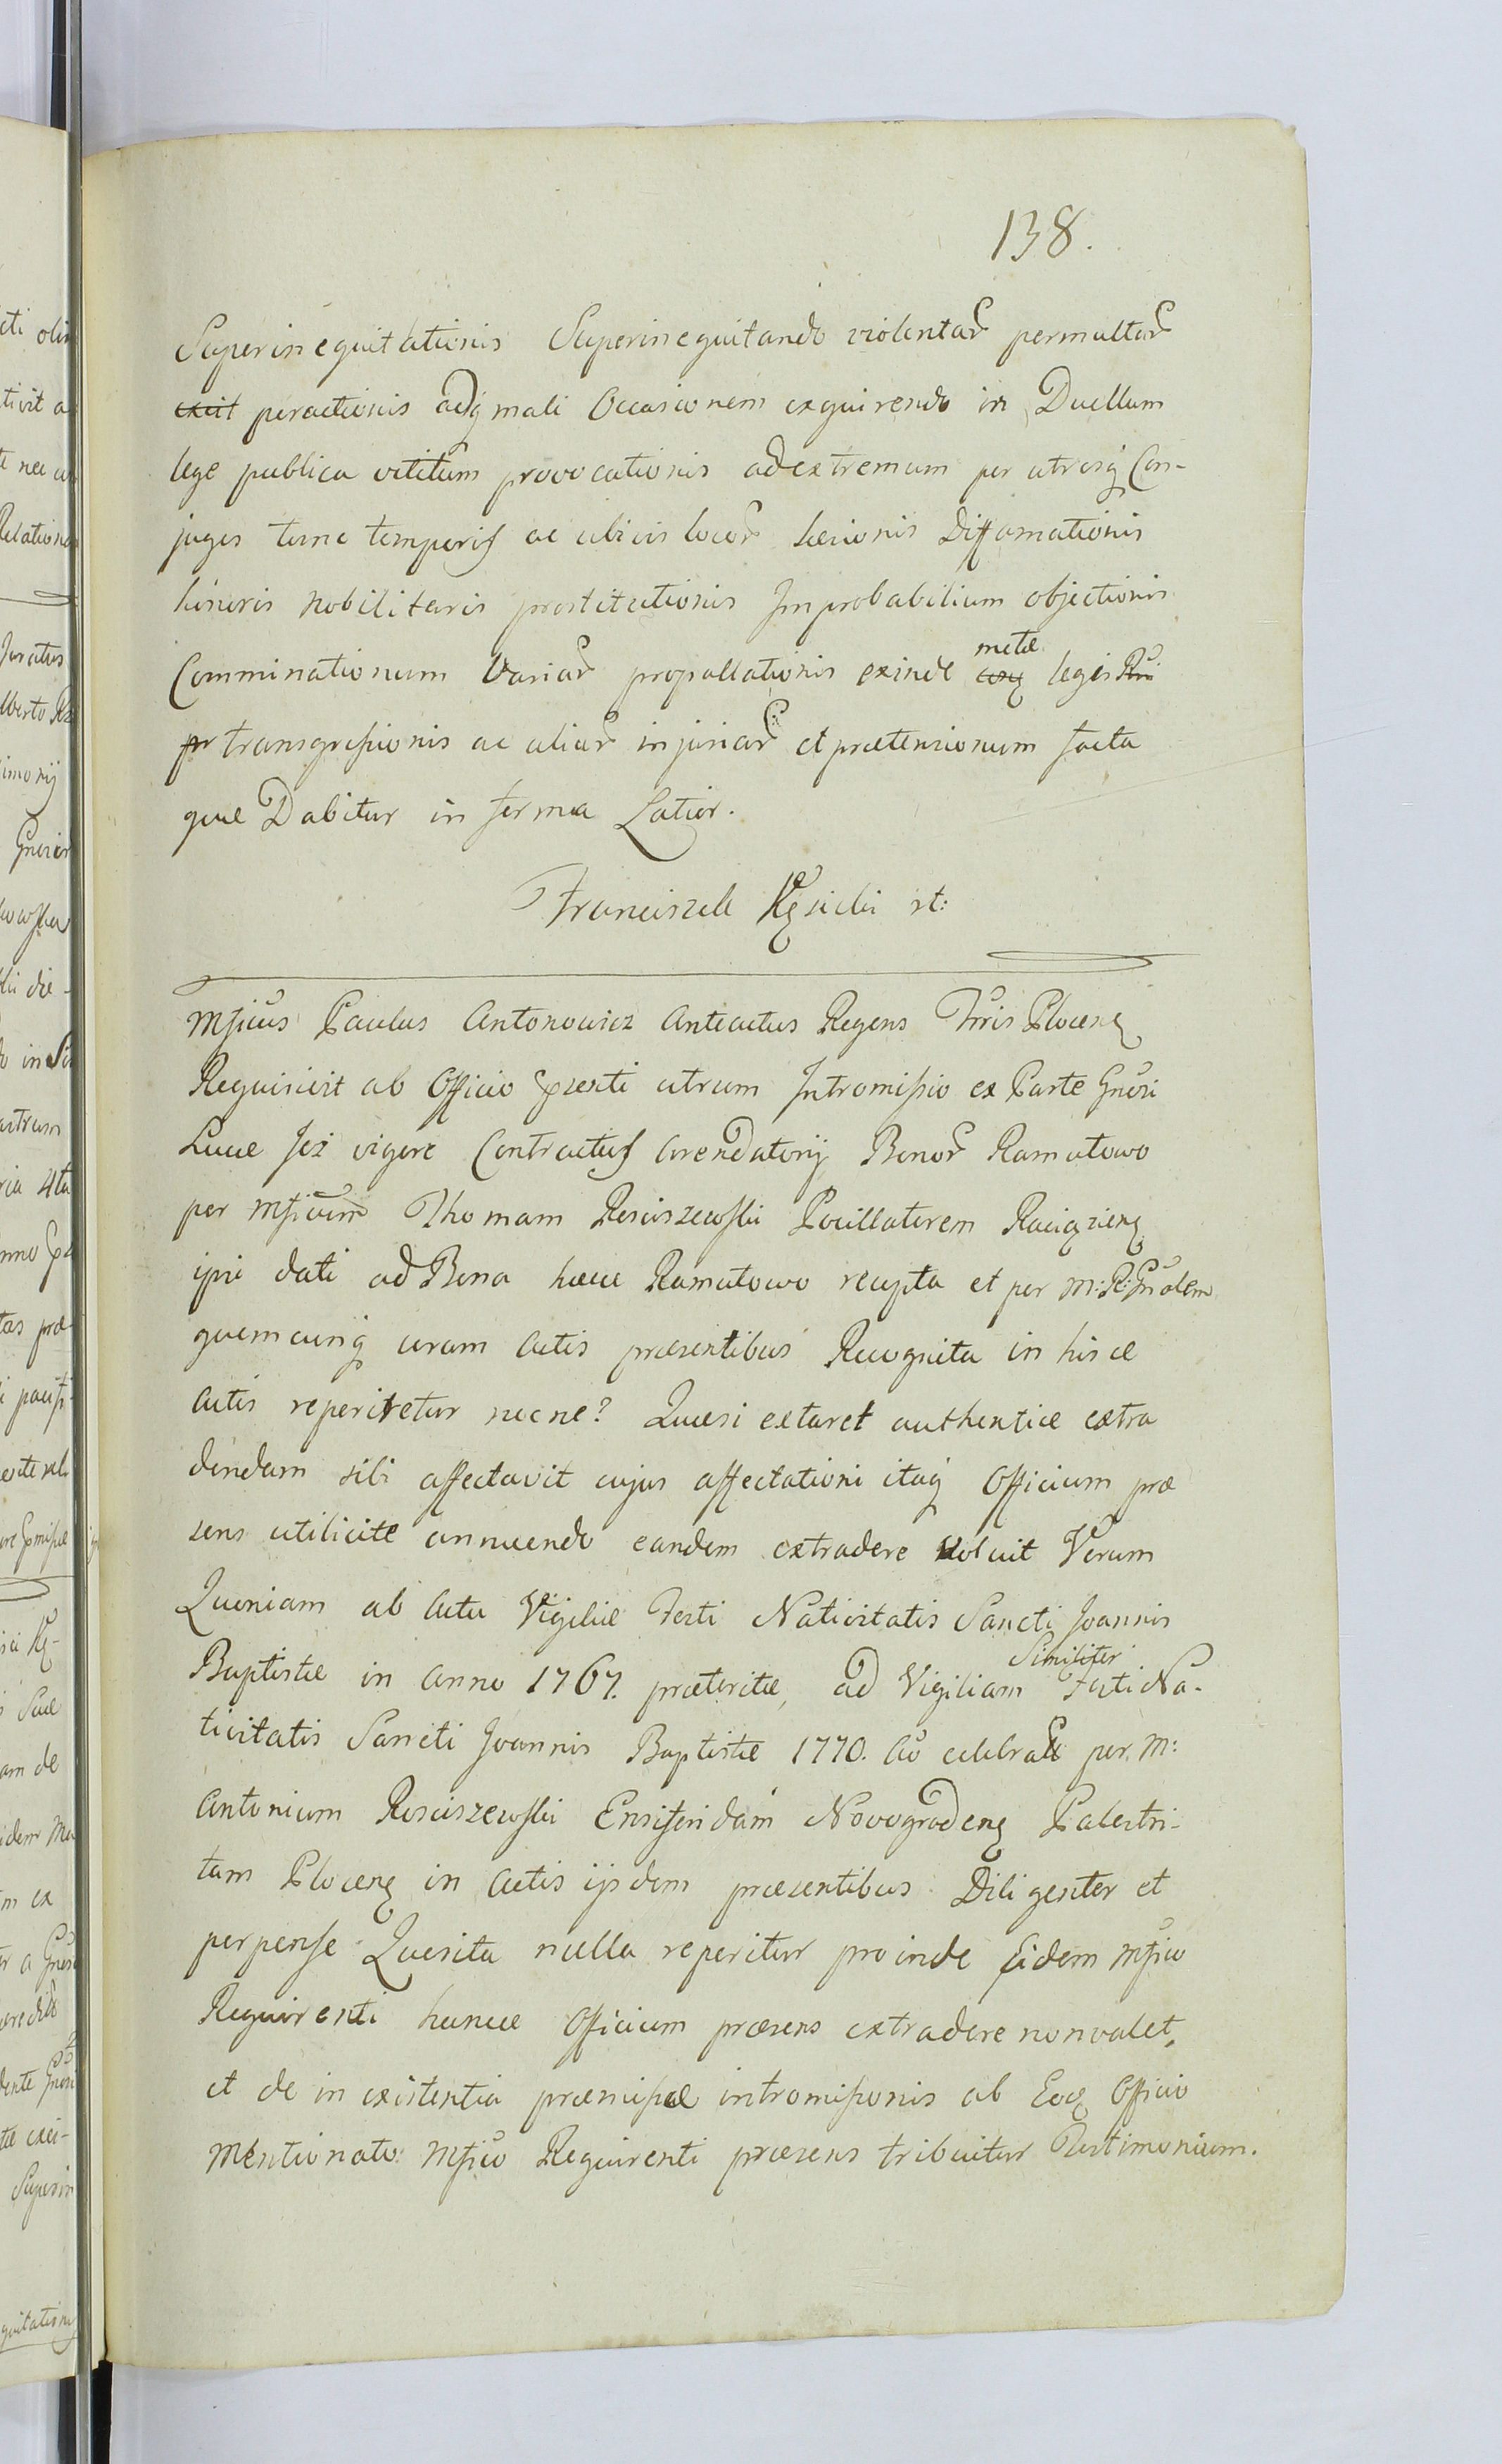 138.
Superinequitationis Superinequitando violentar permultar
exeit peractionis adq mali Occasionem exquirendo in Duellum
lege publica vetitum provocationis ad extremum per utrosq Con-
juges tunc temporis ac ubivis locor læsionis Diffamationis
honoris nobilitaris prostitutionis Improbabilium objectionis
Comminationum Variar propallationis exinde metæ legis Rni
transgressionis ac aliar injuriar et prætensionum facta
quæ Dabitur in forma Latior.
Franciszek Kęsicki st:
Mficus Paulus Antonowicz Anteactus Regens Trris Plocenſ
Requisivit ab Officio pxsenti utrum Intromissio ex Parte Gnosi
Lucæ Jeż vigore Contractus Arendatorij Bonor Ramutowo
per Mficum Thomam Rosciszewski Pocillatorem Raciązienſ
ipsi dati ad Bona hæcce Ramutowo recepta et per M:R:Gnalem
quemcunq coram Actis præsentibus Recognita in hisce
Actis reperiretur necne? Quæsi extaret authentice extra
dendam sibi affectavit cujus affectationi itaq Officium præ
sens utilicite annuendo eandem extradere voluit Verum
Quoniam ab Actu Vigiliæ Festi Nativitatis Sancti Joannis
Baptistæ in Anno 1767. præteritæ, ad Vigiliam Similiter Festi Na-
tivitatis Sancti Joannis Baptistæ 1770. Ao celebratæ per M:
Antonium Rosciszewski Ensiferidam Novogrodenſ Palestri-
tam Plocenſ in Actis ijsdem præsentibus Diligenter et
perpense Quæsita nulla reperitur proinde Eidem Mfico
Requirenti huncce Officium præsens extradere non valet,
et de in existentia præmissæ intromissionis ab Eoq Officio
Mentionato: Mfico Requirenti præsens tribuitur Testimonium.